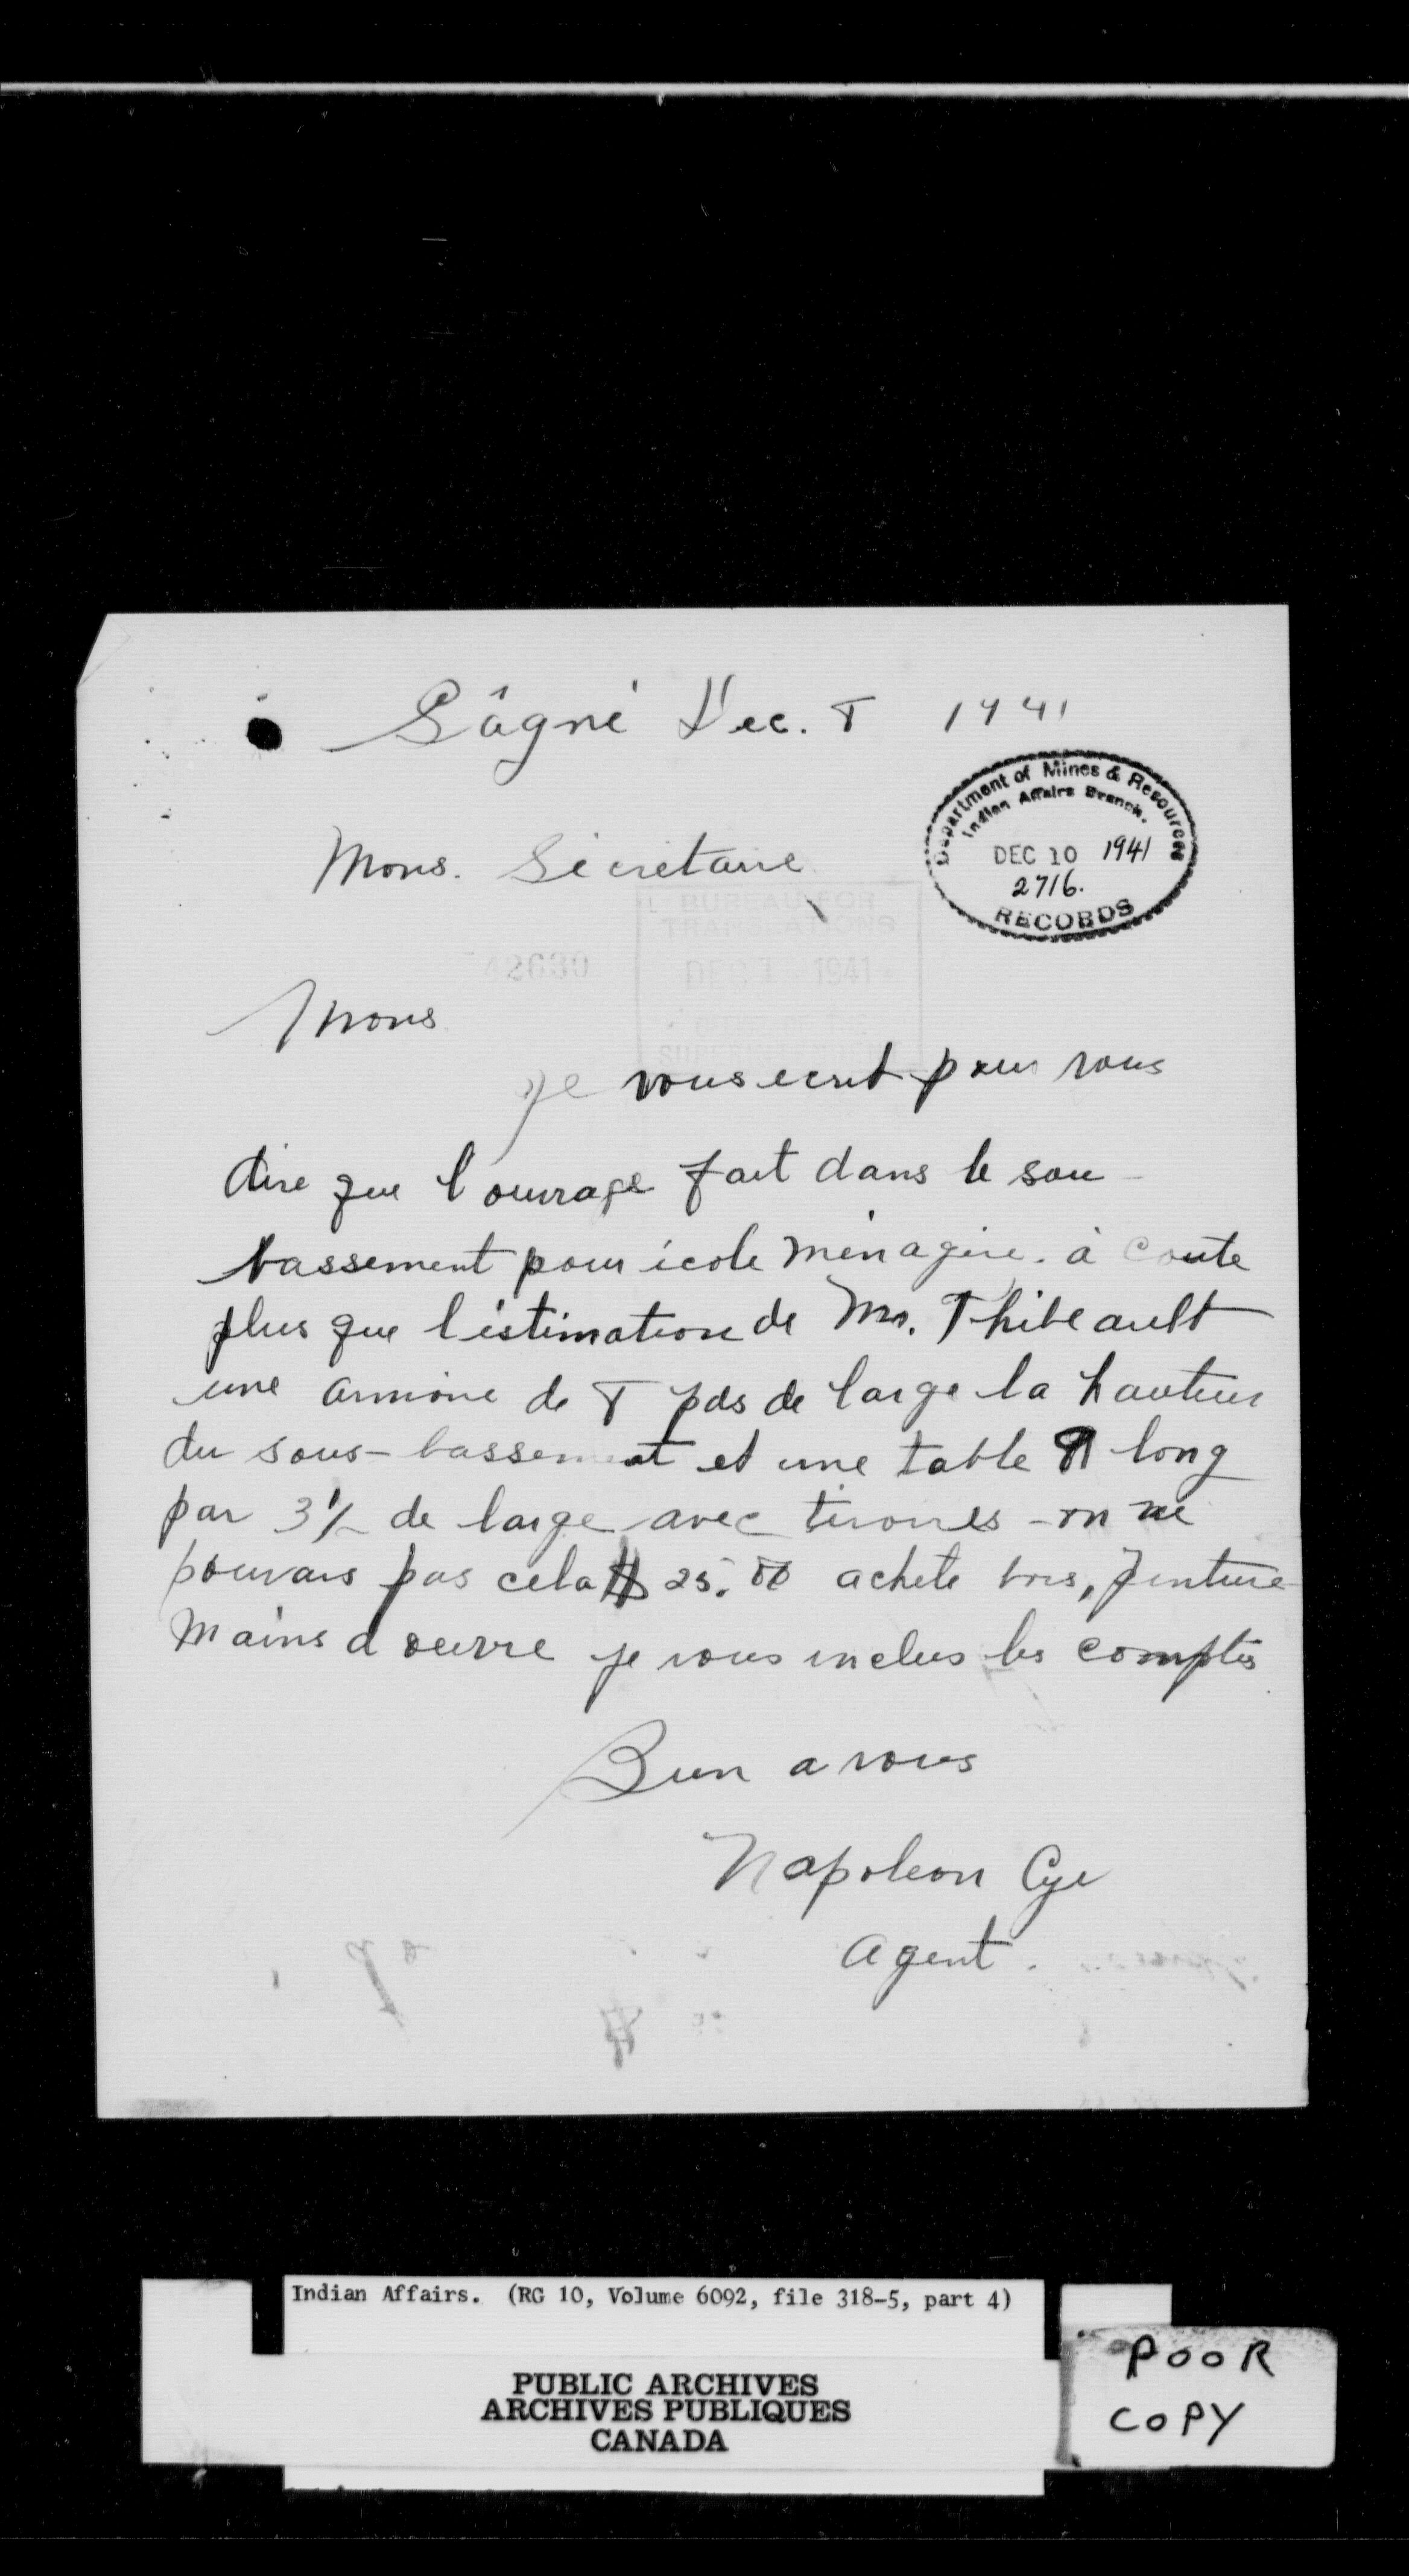 Gâgné Dec. 8 1941
Department of Mines & Resources
Indian Affairs Branch.
DEC 10 1941
2716.
RECORDS
Mons. Sécrétaire
BUREAU FOR
TRANSLATIONS
42630
DEC 1941
SUPERINTENDENT
Mons
Je vous ecrit pour vous
dire que l'ouvrage fait dans le sou-
bassement pour école ménagère. à coute
plus que l'éstimation de Mr. Thibeault
une armoire de 8 pds de large la hauteur
du sous-bassement et une table long
par 3½ de large avec tiroires - on ne
pouvais pas cela $25.00 acheté bois, peinture
mains d'oeuvre je vous inclus les comptes
Bien a vous
Napoleon Cyr
Agent.
Indian Affairs. (RG 10, Volume 6092, file 318-5, part 4)
PUBLIC ARCHIVES
ARCHIVES PUBLIQUES
CANADA
POOR
COPY